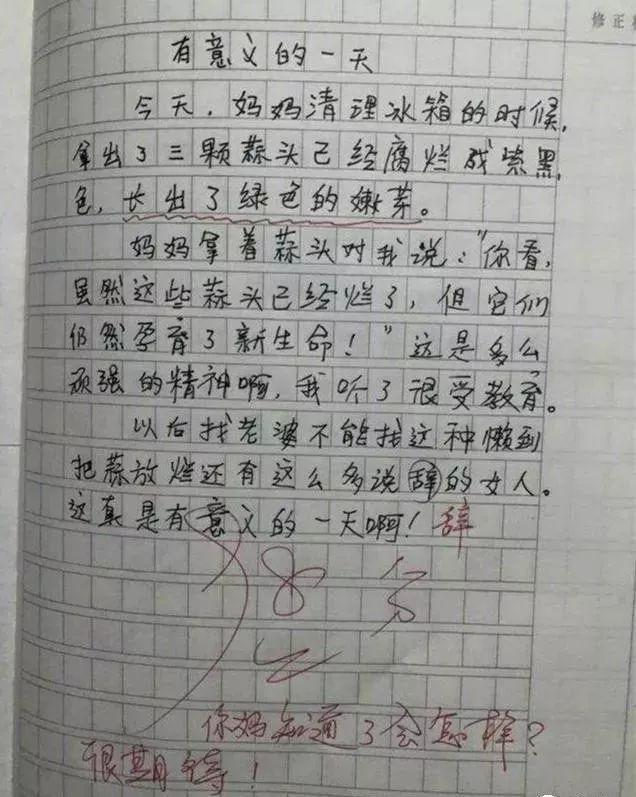 修正
有意义的一天
今天，妈妈清理冰箱的时候，
拿出了三颗蒜头已经腐烂成紫黑
色，长出了绿色的嫩芽。
妈妈拿着蒜头对我说：“你看，
虽然这些蒜头已经烂了，但它们
仍然孕育了新生命！”这是多么
顽强的精神啊，我听了很受教育。
以后找老婆不能找这种懒到
把蒜放烂还有这么多说辞的女人。
这真是有意义的一天啊！辞
28分
你妈知道了会怎样？
很期待！